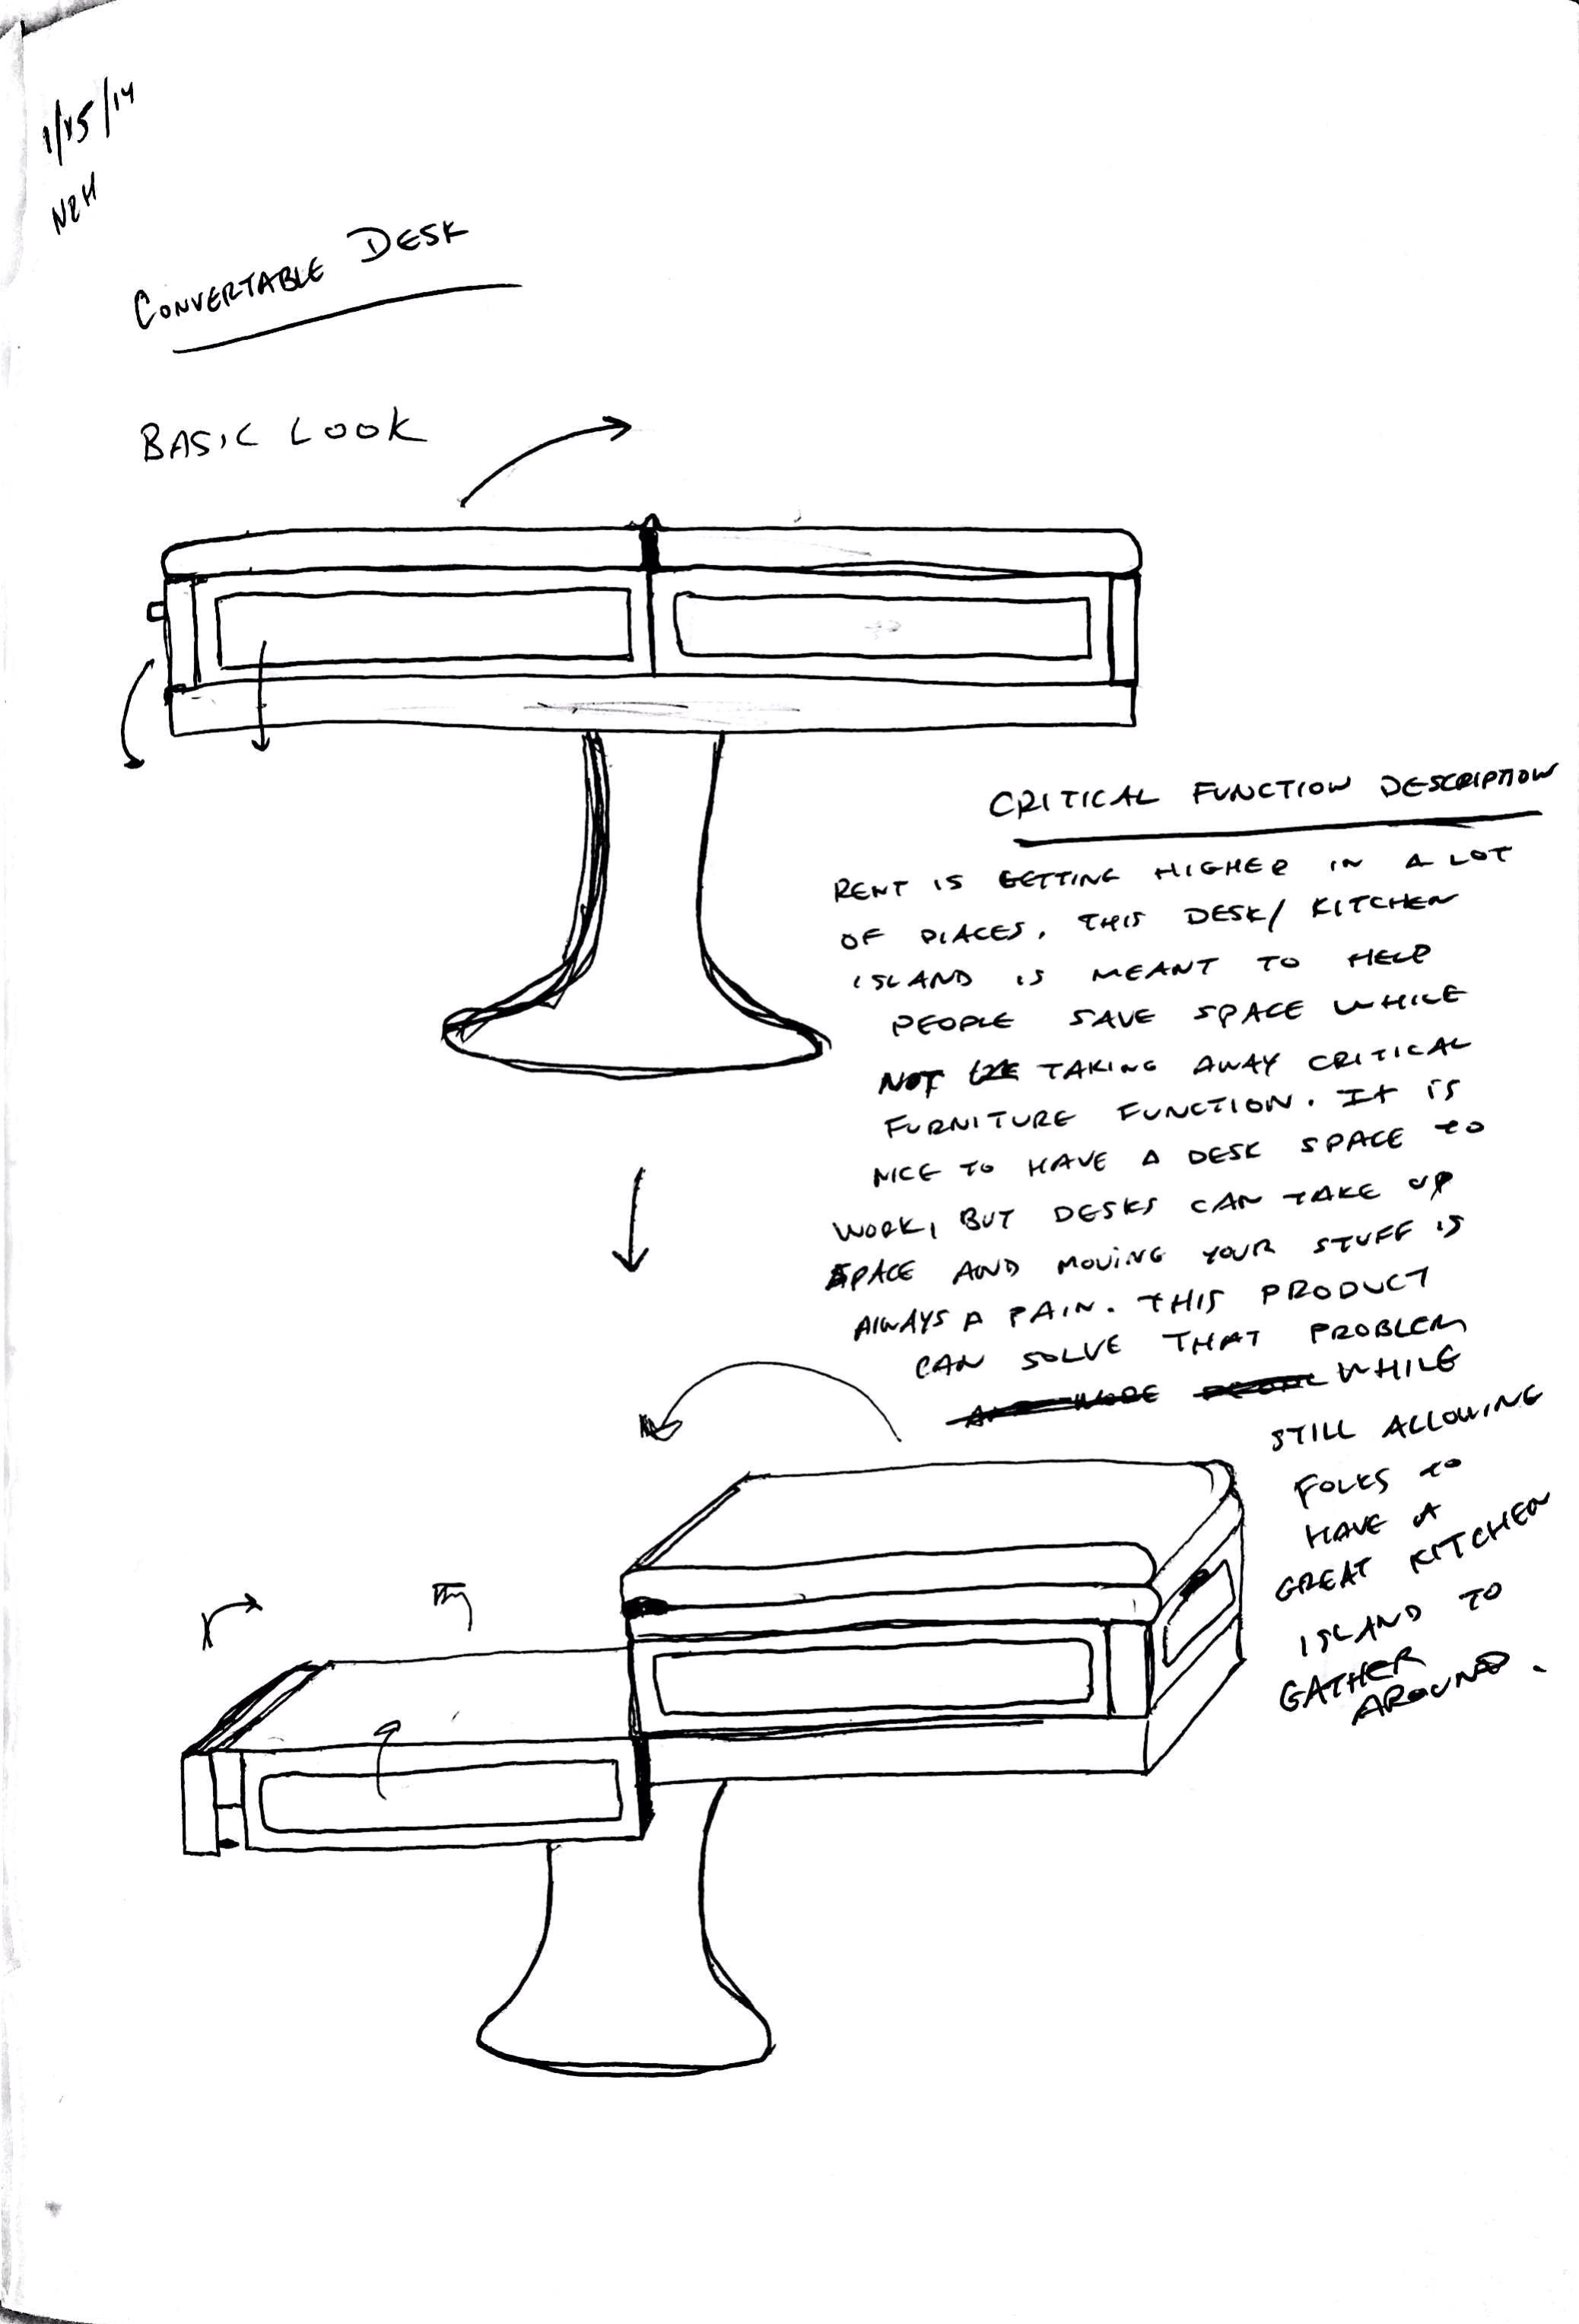 1/15/14
NRH
CONVERTABLE DESK
BASIC LOOK
CRITICAL FUNCTION DESCRIPTION
RENT IS GETTING HIGHER IN A LOT
OF PLACES. THIS DESK/ KITCHEN
ISLAND IS MEANT TO HELP
PEOPLE SAVE SPACE WHILE
NOT TAKING AWAY CRITICAL
FURNITURE FUNCTION. It is
NICE TO HAVE A DESK SPACE TO
WORK, BUT DESKS CAN TAKE UP
SPACE AND MOVING YOUR STUFF IS
ALWAYS A PAIN. THIS PRODUCT
CAN SOLVE THAT PROBLEM
WHILE
STILL ALLOWING
FOLKS TO
HAVE A
GREAT KITCHEN
ISLAND TO
GATHER
AROUND.